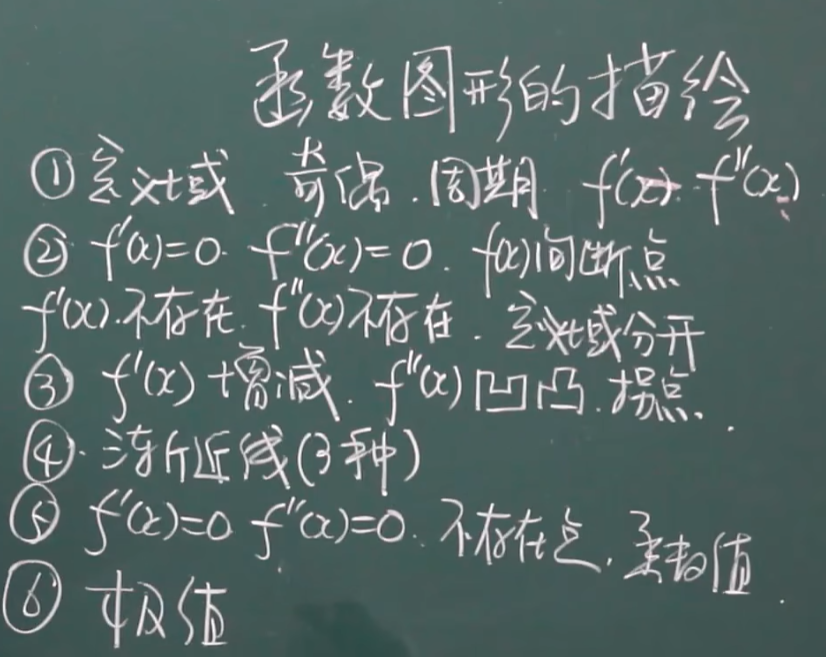 函数图形的描绘
① 定义域 奇偶.周期 f'(x) f''(x)
② f'(x)=0. f''(x)=0. f(x)间断点
f'(x)不存在. f''(x)不存在. 定义域分开
③ f'(x)增减. f''(x)凹凸.拐点.
④ 渐近线(3种)
⑤ f'(x)=0 f''(x)=0. 不存在点. 函数值
⑥ 极值